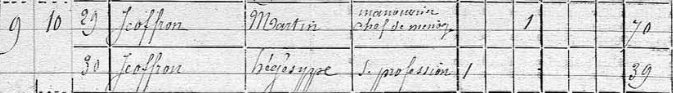 9 10 29 Jeoffron Martin manouvrier chef de ménag. 1 70
30 Jeoffron hégésyppe s. profession 1 39